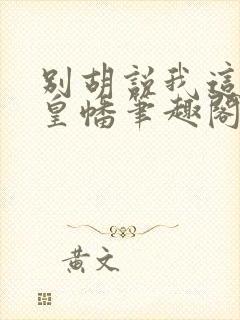 别胡說我這
皇幡筆趣閣
黄文